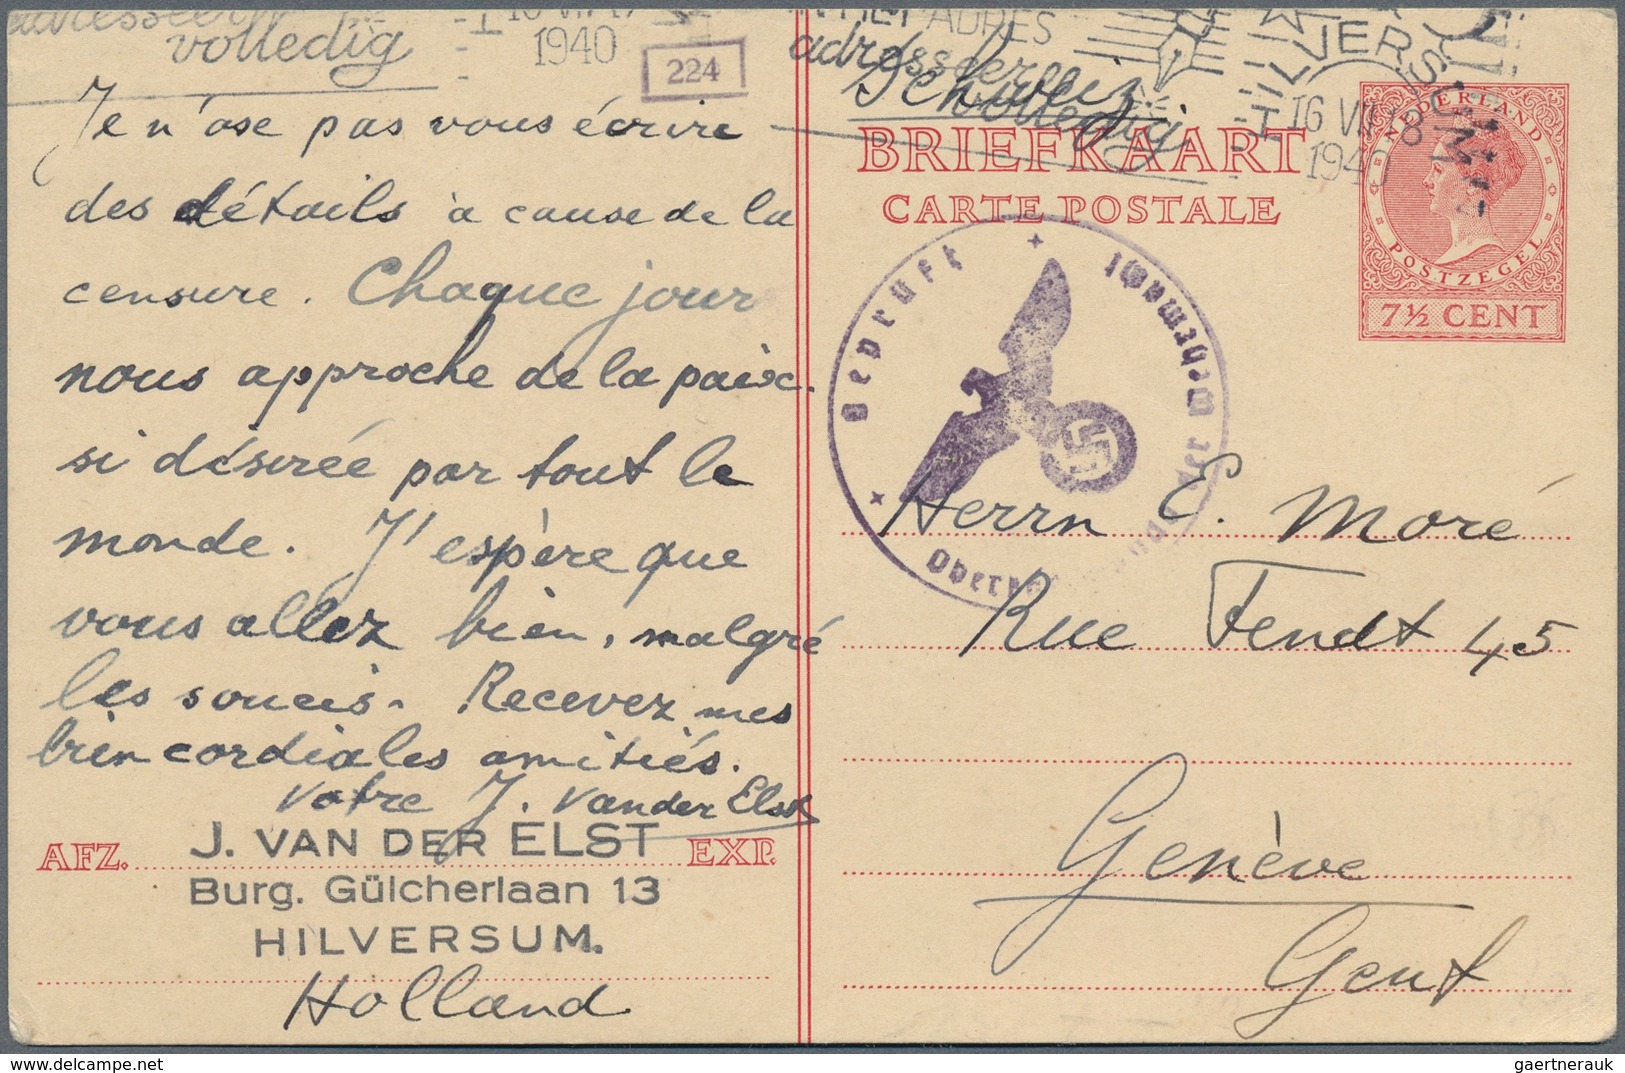 adresseer
volledig
1940
224
Je n'ose pas vous écrire
des détails à cause de la
censure. Chaque jour
nous approche de la paix.
si désirée par tout le
monde. J'espère que
vous allez bien, malgré
les soucis. Recevez mes
bien cordiales amitiés.
Votre J. Van der Elst
AFZ. J. VAN DER ELST EXP.
Burg. Gülcherlaan 13
HILVERSUM.
Holland
ADRES
adresseer
volledig
Schweiz
HILVERSUM
16 VII 18
1940
BRIEFKAART
CARTE POSTALE
NEDERLAND
POSTZEGEL
7½ CENT
Geprüft
Oberkommando der Wehrmacht
Herrn E. Moré
Rue Fendt 45
Genève
Genf
gaertnerauk @ delcampe.net